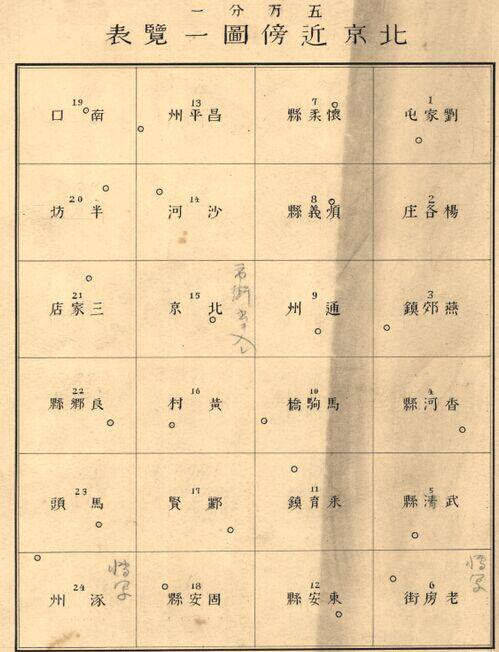 五万分一
北京近傍圖一覽表
1
劉家屯
2
楊各庄
3
燕郊鎮
4
香河縣
5
武清縣
6
老房街
7
懷柔縣
8
順義縣
9
通州
10
馬駒橋
11
永育鎮
12
東安縣
13
昌平州
14
沙河
15
北京
16
黃村
17
賢
18
固安縣
19
南口
20
半坊
21
三家店
22
良鄉縣
23
馬頭
24
涿州